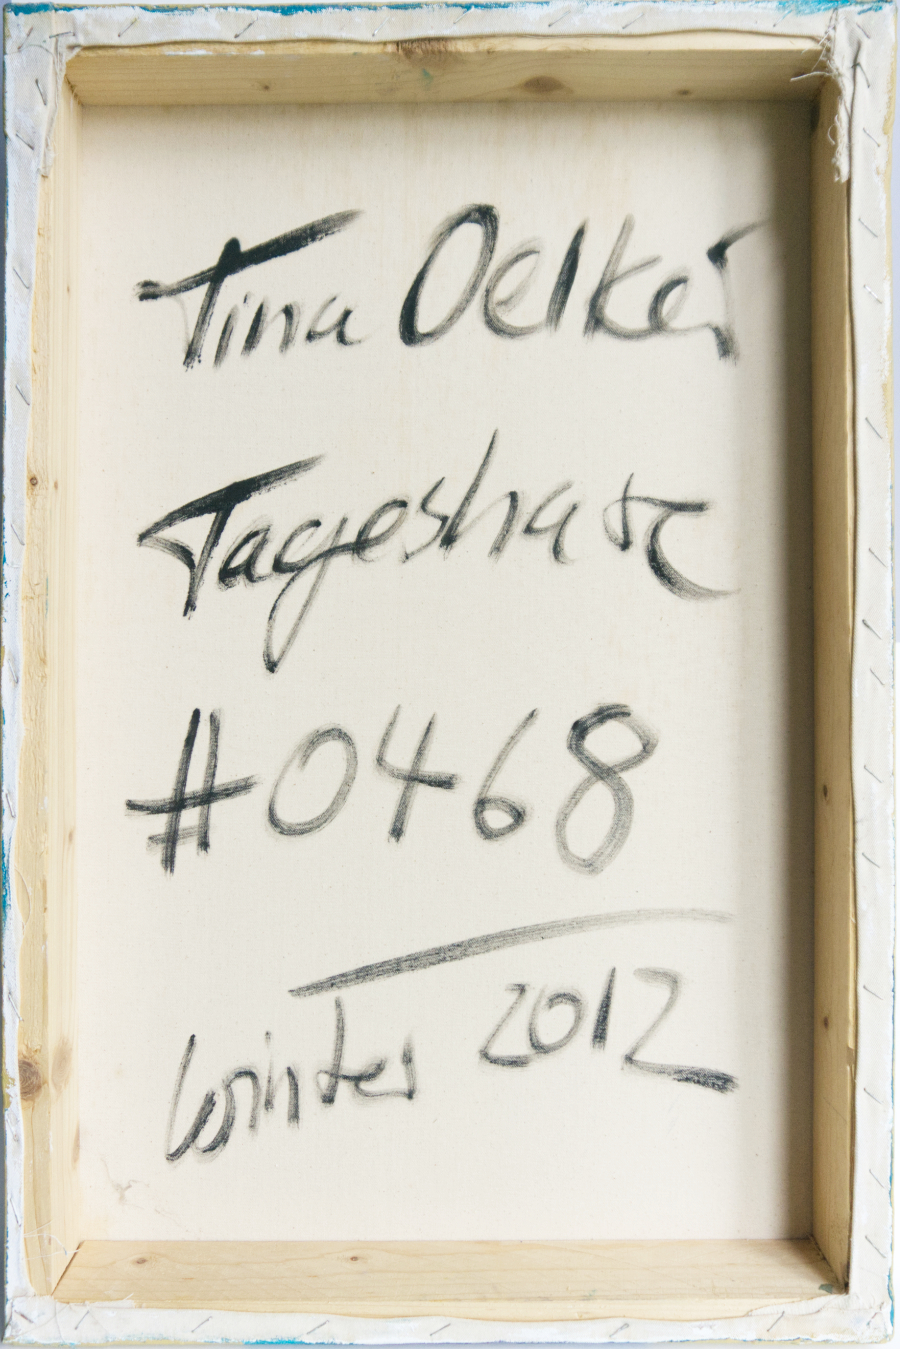 Tina Oelker
Tageshase
#0468
Winter 2012